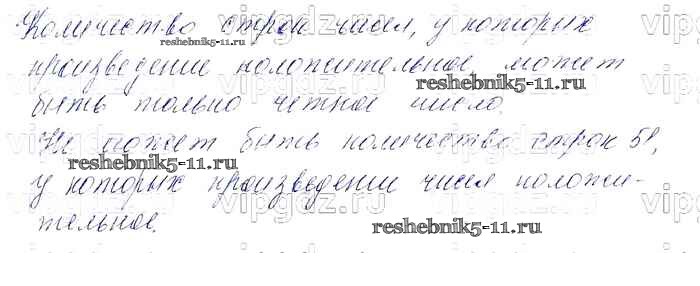 Количество строк чисел, у которых
произведение положительное может
быть только четное число.
Не может быть количество строк 51,
у которых произведении чисел положи-
тельное.
reshebnik5-11.ru
reshebnik5-11.ru
reshebnik5-11.ru
reshebnik5-11.ru
vipgdz.ru
vipgdz.ru
vipgdz.ru
vipgdz.ru